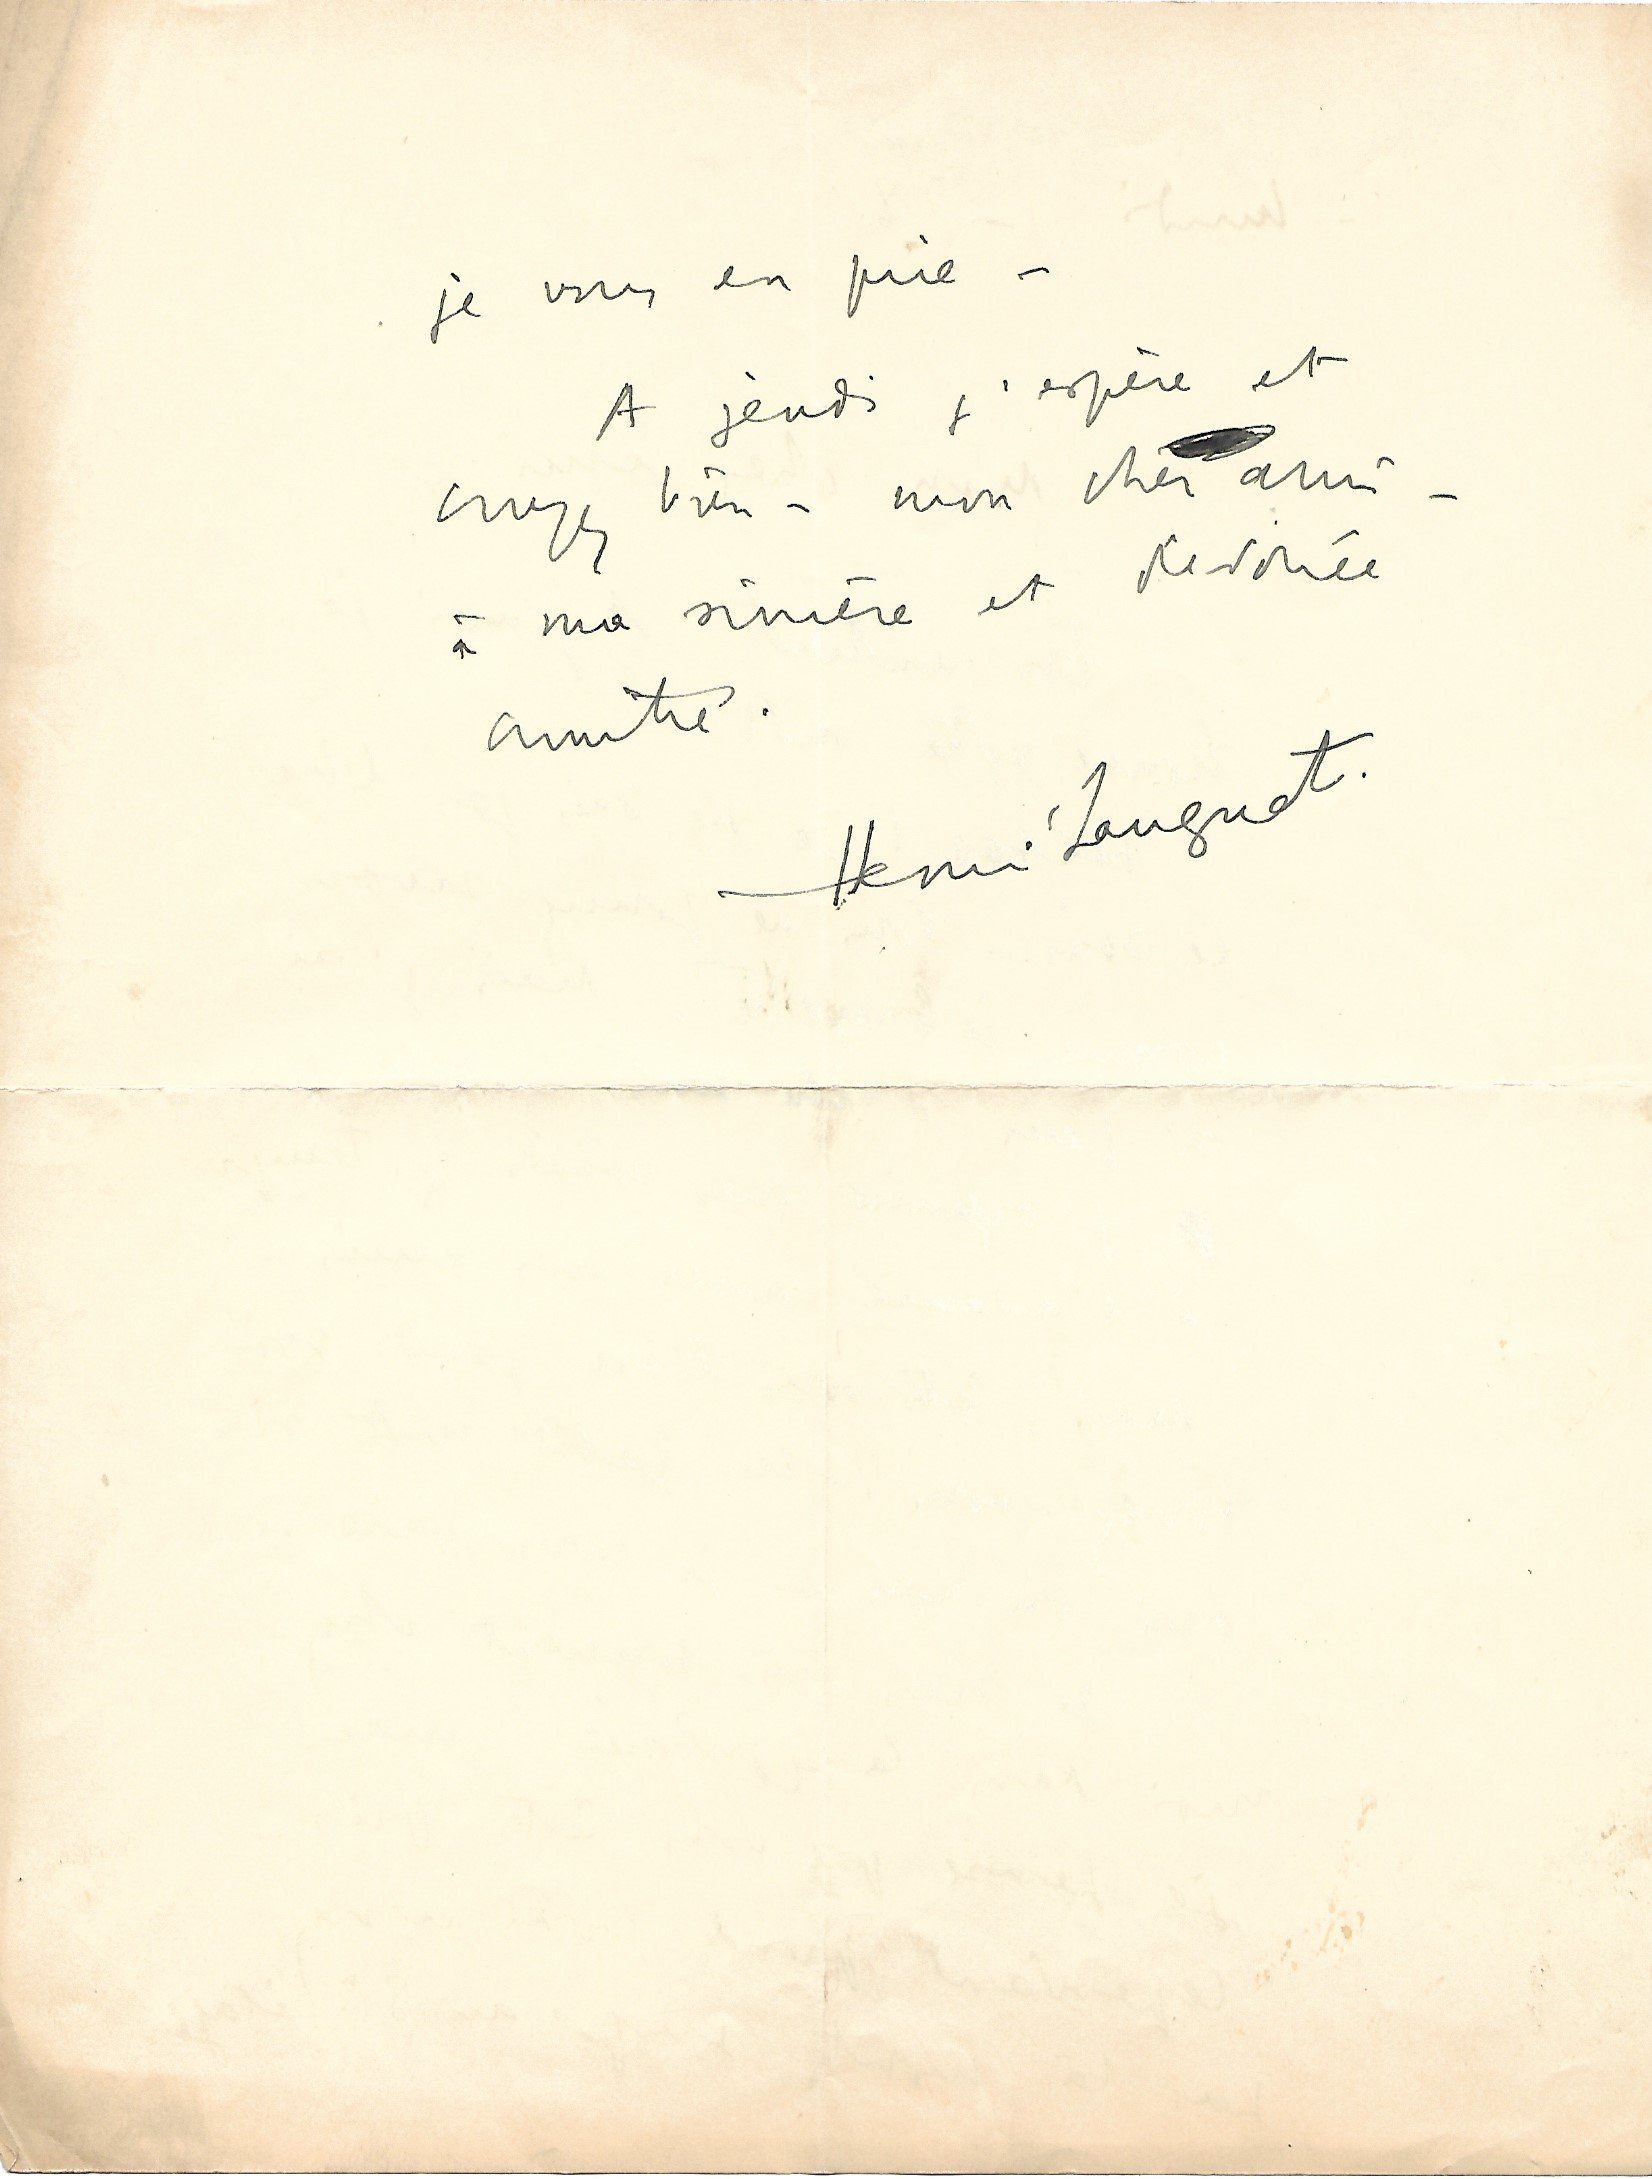 je vous en prie -
A jeudi j'espère et
croyez bien - mon cher ami -
à ma sincère et dévouée
amitié.
Henri Sauguet.